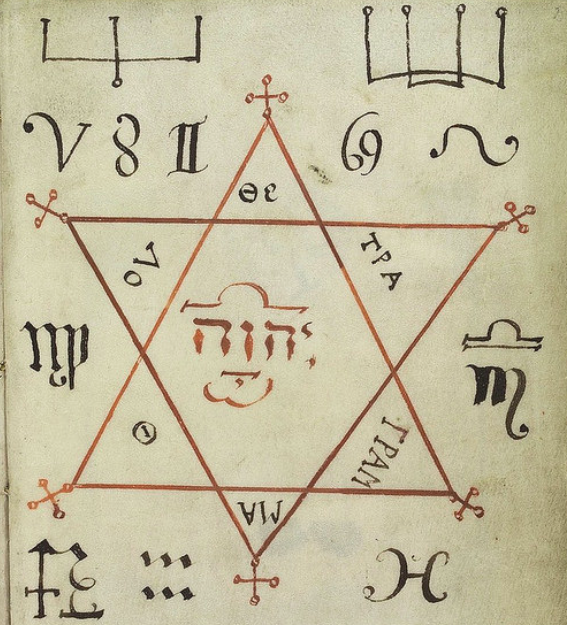 ΘΕ
ΟV
ΤΡΑ
יהוה
Θ
ΓΡΑΜ
ΜΑ